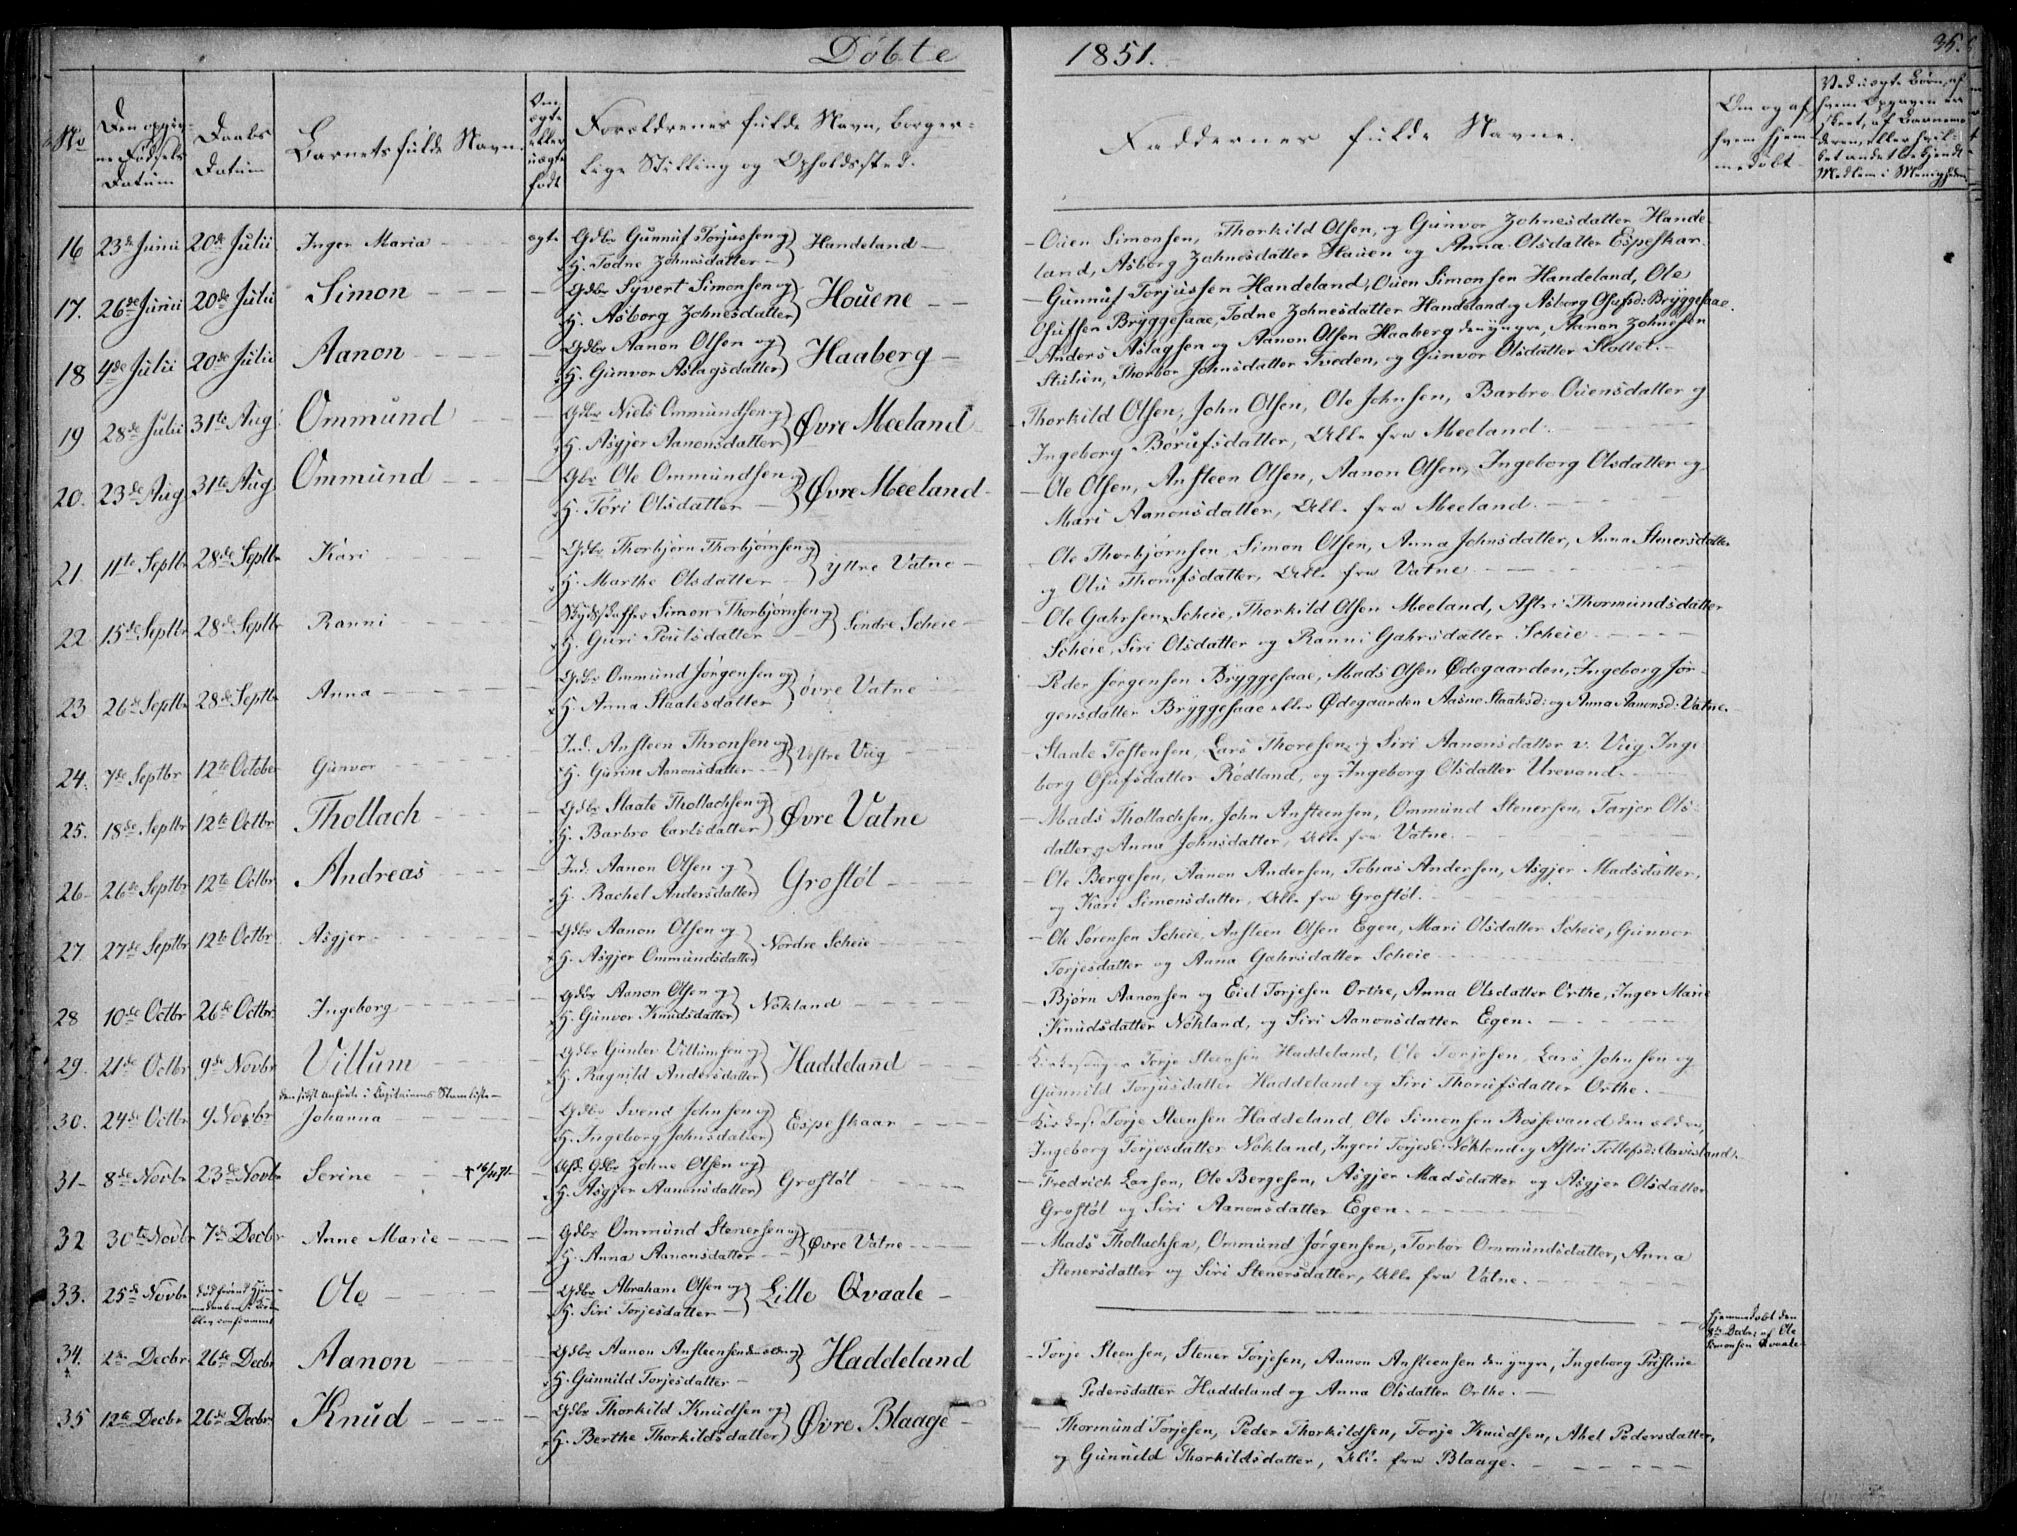 Döbte 1851.
35.
No
Den opgivne Födsels Datum
Daabs Datum
Barnets fulde Navn.
Om ægte eller uægte født
Forældrenes fulde Navn, borger-
lige Stilling og Opholdssted.
Faddernes fulde Navne.
Om og af hvem hjemmedøbt
16 23de Junii 20de Julii Inger Maria ægte Gdbr Gunnuf Torjussen og H. Todne Zohnesdatter Handeland
Ouen Simonsen, Thorkild Olsen, og Gunvor Zohnesdatter Hande-
land, Asborg Zohnesdatter Hauen og Anna Olsdatter Espeskar.
17. 26de Junii 20de Julii Simon Gdbr Syvert Simonsen og H. Asborg Zohnesdatter Houene
Gunnuf Torjussen Handeland, Ouen Simonsen Handeland, Ole
Osufsen Bryggesaae, Todne Zohnesdatter Handeland og Asborg Osufsd: Bryggesaae.
18 4de Julii 20de Julii Aanon Gdbr Aanon Olsen og H. Gunvor Aslagsdatter Haaberg
Anders Aslagsen og Aanon Olsen Haaberg den yngre, Aanon Zohnesen
Stulien, Thorbor Johnsdatter Tveden, og Gunvor Olsdatter Slottet.
19 28de Julii 31te Aug Ommund Gdbr Niels Ommundsen og H. Asgjer Aanonsdatter Øvre Meeland
Thorkild Olsen, John Olsen, Ole Johnsen, Barbro Ouensdatter og
Ingeborg Borufsdatter, Alle fra Meeland.
20. 23de Aug 31te Aug Ommund Gbr Ole Ommundsen og H. Tori Olsdatter Øvre Meeland
Ole Olsen, Ansteen Olsen, Aanon Olsen, Ingeborg Olsdatter og
Mari Aanonsdatter, Alle fra Meeland.
21. 11te Septbr 28de Septbr Kari Gdbr Thorbjørn Thorbjørnsen og H. Marthe Olsdatter yttre Vatne
Ole Thorbjørnsen, Simon Olsen, Anna Johnsdatter, Anna Stenersdatter
og Olu Thorufsdatter, Alle fra Vatne
22 15de Septbr 28de Septbr Ranni Skydsskaffer Simon Thorbjørnsen og H. Guri Poulsdatter Søndre Scheie
Ole Gahrsen Scheie, Thorkild Olsen Meeland, Astri Thormundsdatter
Scheie, Siri Olsdatter og Ranni Gahrsdatter Scheie
23 26de Septbr 28de Septbr Anna Gdbr Ommund Jørgensen og H. Anna Staalesdatter øvre Vatne
Peder Jørgensen Bryggesaae, Mads Olsen Ødegaarden, Ingeborg Jør-
gensdatter Bryggesaae eller Ødegaarden Aasne Staalesd: og Anna Aanonsd: Vatne.
24. 7de Septbr 12te October Gunvor Ind. Ansteen Thronsen og H. Gurine Aanonsdatter Vestre Vig
Staale Tostensen, Lars Thoresen og Siri Aanonsdatter v. Viig Inge-
borg Osufsdatter Rødland, og Ingeborg Olsdatter Urevand.
25. 18de Septbr 12te Octbr Thollach Gdbr Staale Thollachsen og H. Barbro Carlsdatter Øvre Vatne
Mads Thollachsen, John Ansteensen, Ommund Stenersen, Tarjer Ols-
datter og Anna Johnsdatter, Alle fra Vatne.
26 26de Septbr 12te Octbr Andreas Ind. Aanon Olsen og H. Rachel Andersdatter Grostøl
Ole Bergesen, Aanon Andersen, Tobias Andersen, Asgjer Madsdatter,
og Kari Simonsdatter, Alle fra Grostøl.
27 27de Septbr 12te Octbr Asgjer Gdbr Aanon Olsen og H. Asgjer Ommundsdatter Nordre Scheie
Ole Sørensen Scheie, Ansteen Olsen Egen, Mari Olsdatter Scheie, Gunvor
Torjesdatter og Anna Gahrsdatter Scheie
28 10de Octbr 26de Octbr Ingeborg Gdbr Aanon Olsen og H. Gunvor Knudsdatter Nøkland
Bjørn Aanonsen og Eid Torjesen Orthe, Anna Olsdatter Orthe, Inger Marie
Knudsdatter Nøkland, og Siri Aanonsdatter Egen.
29. 21de Octbr 9de Novbr Villum Gdbr Gunler Villumsen og H. Ragnild Andersdatter Haddeland
Kirkesanger Torje Steensen Haddeland, Ole Torjesen, Lars Johnsen og
Gunnild Torjusdatter Haddeland og Siri Thorufsdatter Orthe.
den sidst anførte i Capitainens Stamliste
30. 24de Octbr 9 Novbr Johanna Gdbr Svend Johnsen og H. Ingeborg Johnsdatter Espeskaar
Kirkes. Torje Steensen Haddeland, Ole Simonsen Rossevand den ældre,
Ingeborg Torjesdatter Nøkland, Ingeri Torjesd: Nøkland og Astri Tellefsd: Aavesland.
31 8de Novbr 23de Novbr Serine Gdbr Zohne Olsen og H. Asgjer Aanonsdatter Grostøl
Fredrich Larsen, Ole Bergesen, Asgjer Madsdatter og Asgjer Olsdatter
Grostøl og Siri Aanonsdatter Egen.
32 30te Novbr 7de Decbr Anne Marie Gdbr Ommund Stenersen og H. Anna Aanonsdatter Øvre Vatne
Mads Thollachsen, Ommund Jørgensen, Torbor Ommundsdatter, Anna
Stenersdatter og Siri Stenersdatter, Alle fra Vatne.
33. 25de Novbr Ole Gdbr Abraham Olsen og H. Siri Torjesdatter Lille Qvaale
hjemmedøbt den 8de Decbr: af Ole Simonsen Qvaale
34. 2den Decbr 26de Decbr Aanon Gdbr Aanon Ansteensen den ældre og H. Gunnild Torjesdatter Haddeland
Torje Steensen, Stener Torjesen, Aanon Ansteensen den yngre, Ingeborg
Pedersdatter Haddeland og Anna Olsdatter Orthe.
35 12te Decbr 26de Decbr Knud Gdbr Thorkild Knudsen og H. Berthe Thorkildsdatter Øvre Blaage
Thormund Torjesen, Peder Thorkildsen, Torje Knudsen, Ahel Pedersdatter,
og Gunnild Thorkildsdatter, Alle fra Blaage.